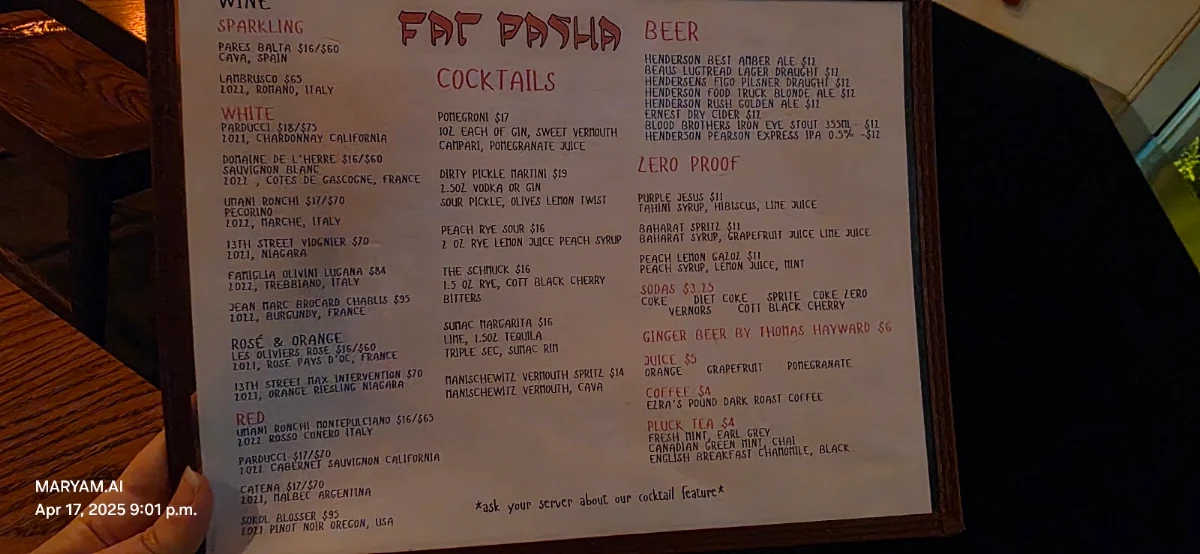 WINE
SPARKLING
PARES BALTA $16/$60
CAVA, SPAIN
LAMBRUSCO $65
2022, ROMANO, ITALY
WHITE
PARDUCCI $18/$75
2021, CHARDONNAY CALIFORNIA
DOMAINE DE L'HERRE $16/$60
SAUVIGNON BLANC
2022 , COTES DE GASCOGNE, FRANCE
UMANI RONCHI $17/$70
PECORINO
2022, MARCHE, ITALY
13TH STREET VIOGNIER $70
2021, NIAGARA
FAMIGLIA OLIVINI LUGANA $84
2022, TREBBIANO, ITALY
JEAN MARC BROCARD CHABLIS $95
2022, BURGUNDY, FRANCE
ROSÉ & ORANGE
LES OLIVIERS ROSE $16/$60
2021, ROSE PAYS D'OC, FRANCE
13TH STREET MAX INTERVENTION $70
2021, ORANGE RIESLING NIAGARA
RED
UMANI RONCHI MONTEPULCIANO $16/$65
2022 ROSSO CONERO ITALY
PARDUCCI $17/$70
2021 CABERNET SAUVIGNON CALIFORNIA
CATENA $17/$70
2021, MALBEC ARGENTINA
SOKOL BLOSSER $95
2021 PINOT NOIR OREGON, USA
FAT PASHA
COCKTAILS
POMEGRONI $17
1OZ EACH OF GIN, SWEET VERMOUTH
CAMPARI, POMEGRANATE JUICE
DIRTY PICKLE MARTINI $19
2.5OZ VODKA OR GIN
SOUR PICKLE, OLIVES LEMON TWIST
PEACH RYE SOUR $16
2 OZ RYE LEMON JUICE PEACH SYRUP
THE SCHMUCK $16
1.5 OZ RYE, COTT BLACK CHERRY
BITTERS
SUMAC MARGARITA $16
LIME, 1.5OZ TEQUILA
TRIPLE SEC, SUMAC RIM
MANISCHEWITZ VERMOUTH SPRITZ $14
MANISCHEWITZ VERMOUTH, CAVA
*ask your server about our cocktail feature*
BEER
HENDERSON BEST AMBER ALE $12
BEAUS LUGTREAD LAGER DRAUGHT $12
HENDERSENS FIGO PILSNER DRAUGHT $12
HENDERSON FOOD TRUCK BLONDE ALE $12
HENDERSON RUSH GOLDEN ALE $12
ERNEST DRY CIDER $12
BLOOD BROTHERS IRON EYE STOUT 355ML - $12
HENDERSON PEARSON EXPRESS IPA 0.5% -$12
ZERO PROOF
PURPLE JESUS $11
TAHINI SYRUP, HIBISCUS, LIME JUICE
BAHARAT SPRITZ $11
BAHARAT SYRUP, GRAPEFRUIT JUICE LIME JUICE
PEACH LEMON GAZOZ $11
PEACH SYRUP, LEMON JUICE, MINT
SODAS $3.25
COKE DIET COKE SPRITE COKE ZERO
VERNORS COTT BLACK CHERRY
GINGER BEER BY THOMAS HAYWARD $6
JUICE $5
ORANGE GRAPEFRUIT POMEGRANATE
COFFEE $4
EZRA'S POUND DARK ROAST COFFEE
PLUCK TEA $4
FRESH MINT, EARL GREY
CANADIAN GREEN MINT, CHAI
ENGLISH BREAKFAST CHAMOMILE, BLACK
MARYAM.AI
Apr 17, 2025 9:01 p.m.